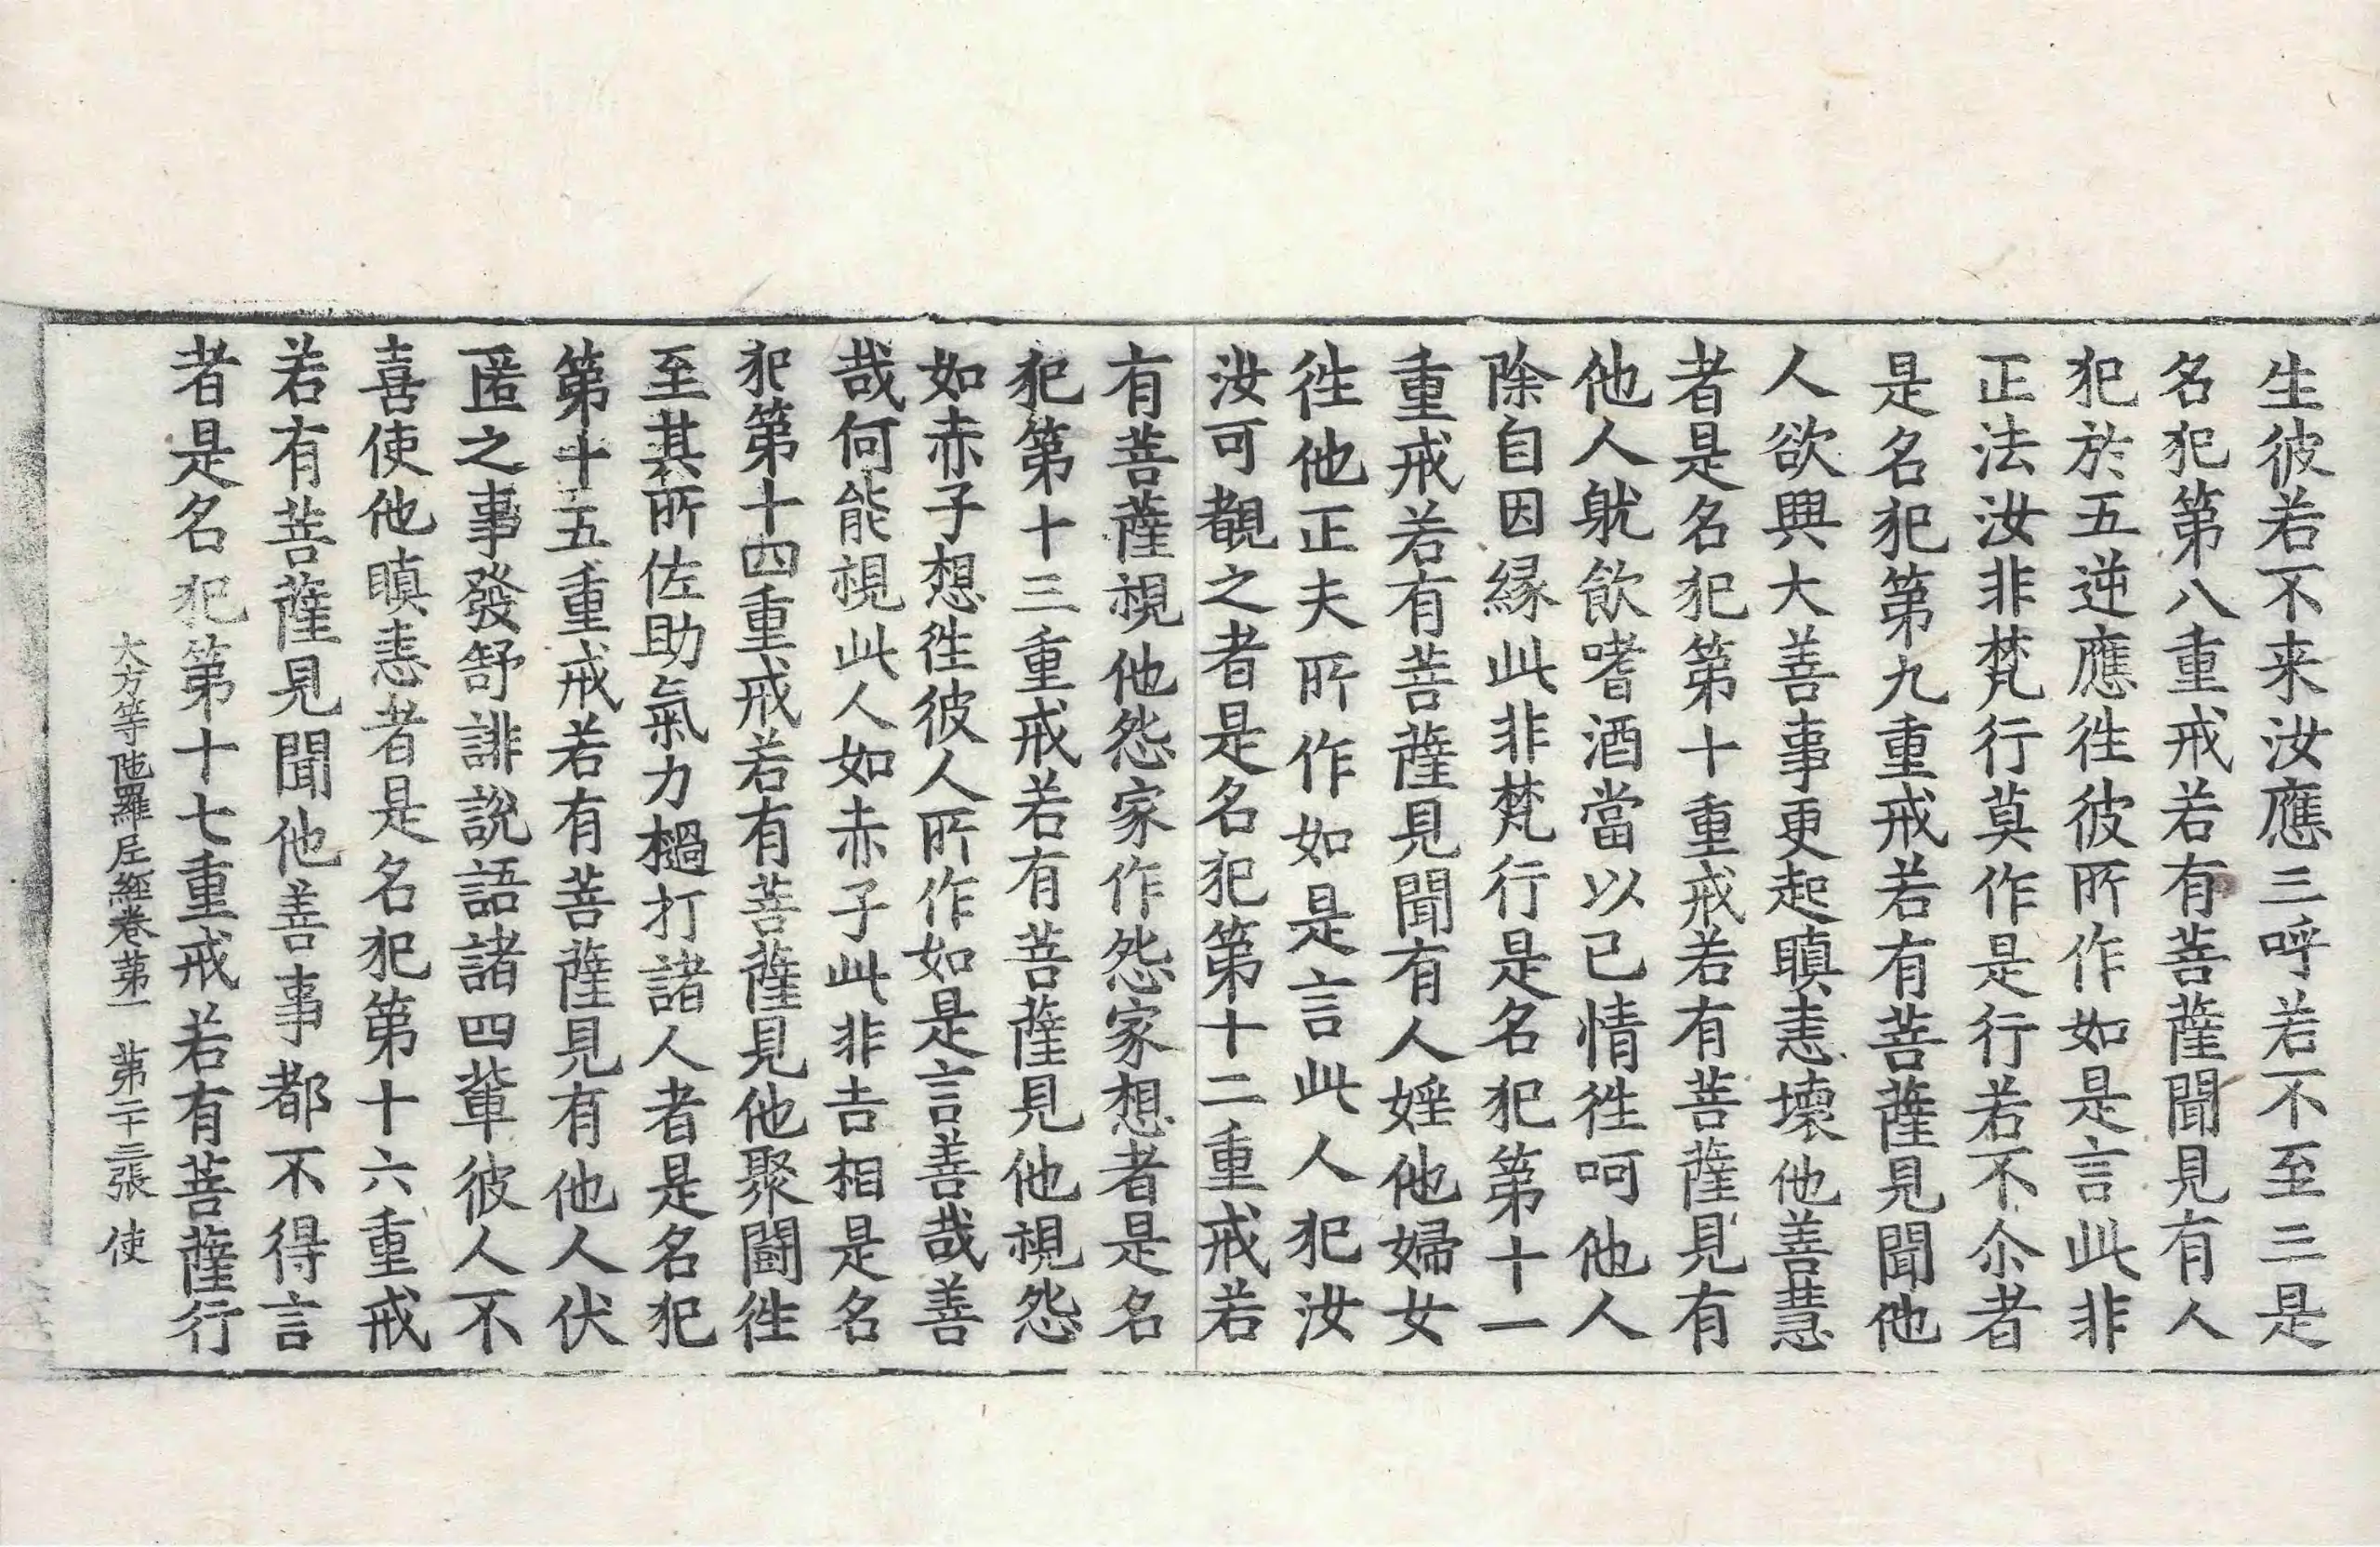 生彼若不来汝應三呼若不至三是
名犯第八重戒若有菩薩聞見有人
犯於五逆應徃彼所作如是言此非
正法汝非梵行莫作是行若不尒者
是名犯第九重戒若有菩薩見聞他
人欲興大善事更起瞋恚壞他善慧
者是名犯第十重戒若有菩薩見有
他人躭飲嗜酒當以已情徃呵他人
除自因縁此非梵行是名犯第十一
重戒若有菩薩見聞有人婬他婦女
徃他正夫所作如是言此人犯汝
汝可覩之者是名犯第十二重戒若
有菩薩視他怨家作怨家想者是名
犯第十三重戒若有菩薩見他視怨
如赤子想徃彼人所作如是言善哉善
哉何能視此人如赤子此非吉相是名
犯第十四重戒若有菩薩見他聚鬪徃
至其所佐助氣力檛打諸人者是名犯
第十五重戒若有菩薩見有他人伏
匿之事發舒誹說語諸四輩彼人不
喜使他瞋恚者是名犯第十六重戒
若有菩薩見聞他善事都不得言
者是名犯第十七重戒若有菩薩行
大方等陁羅尼經卷第一 第二十三張 使